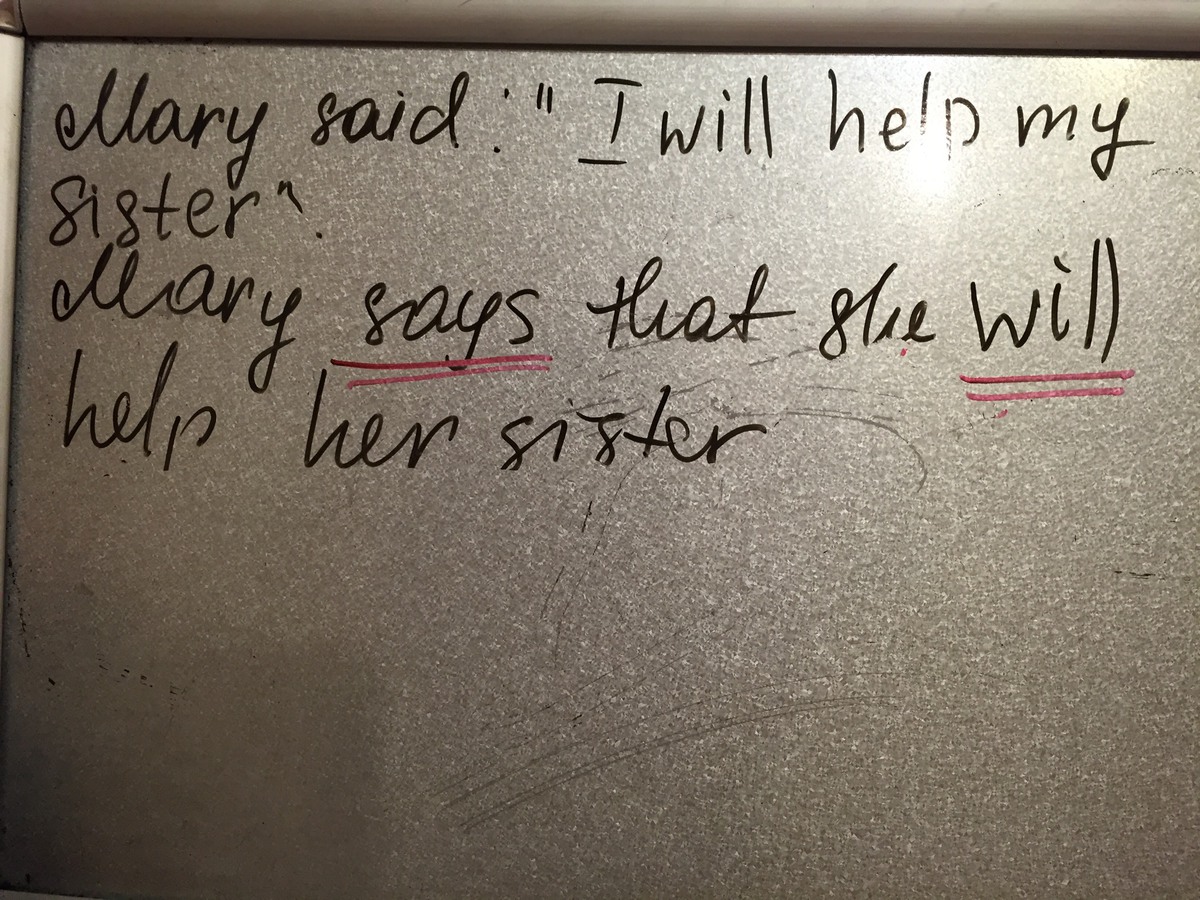 Mary said: " I will help my
sister".
Mary says that she will
help her sister